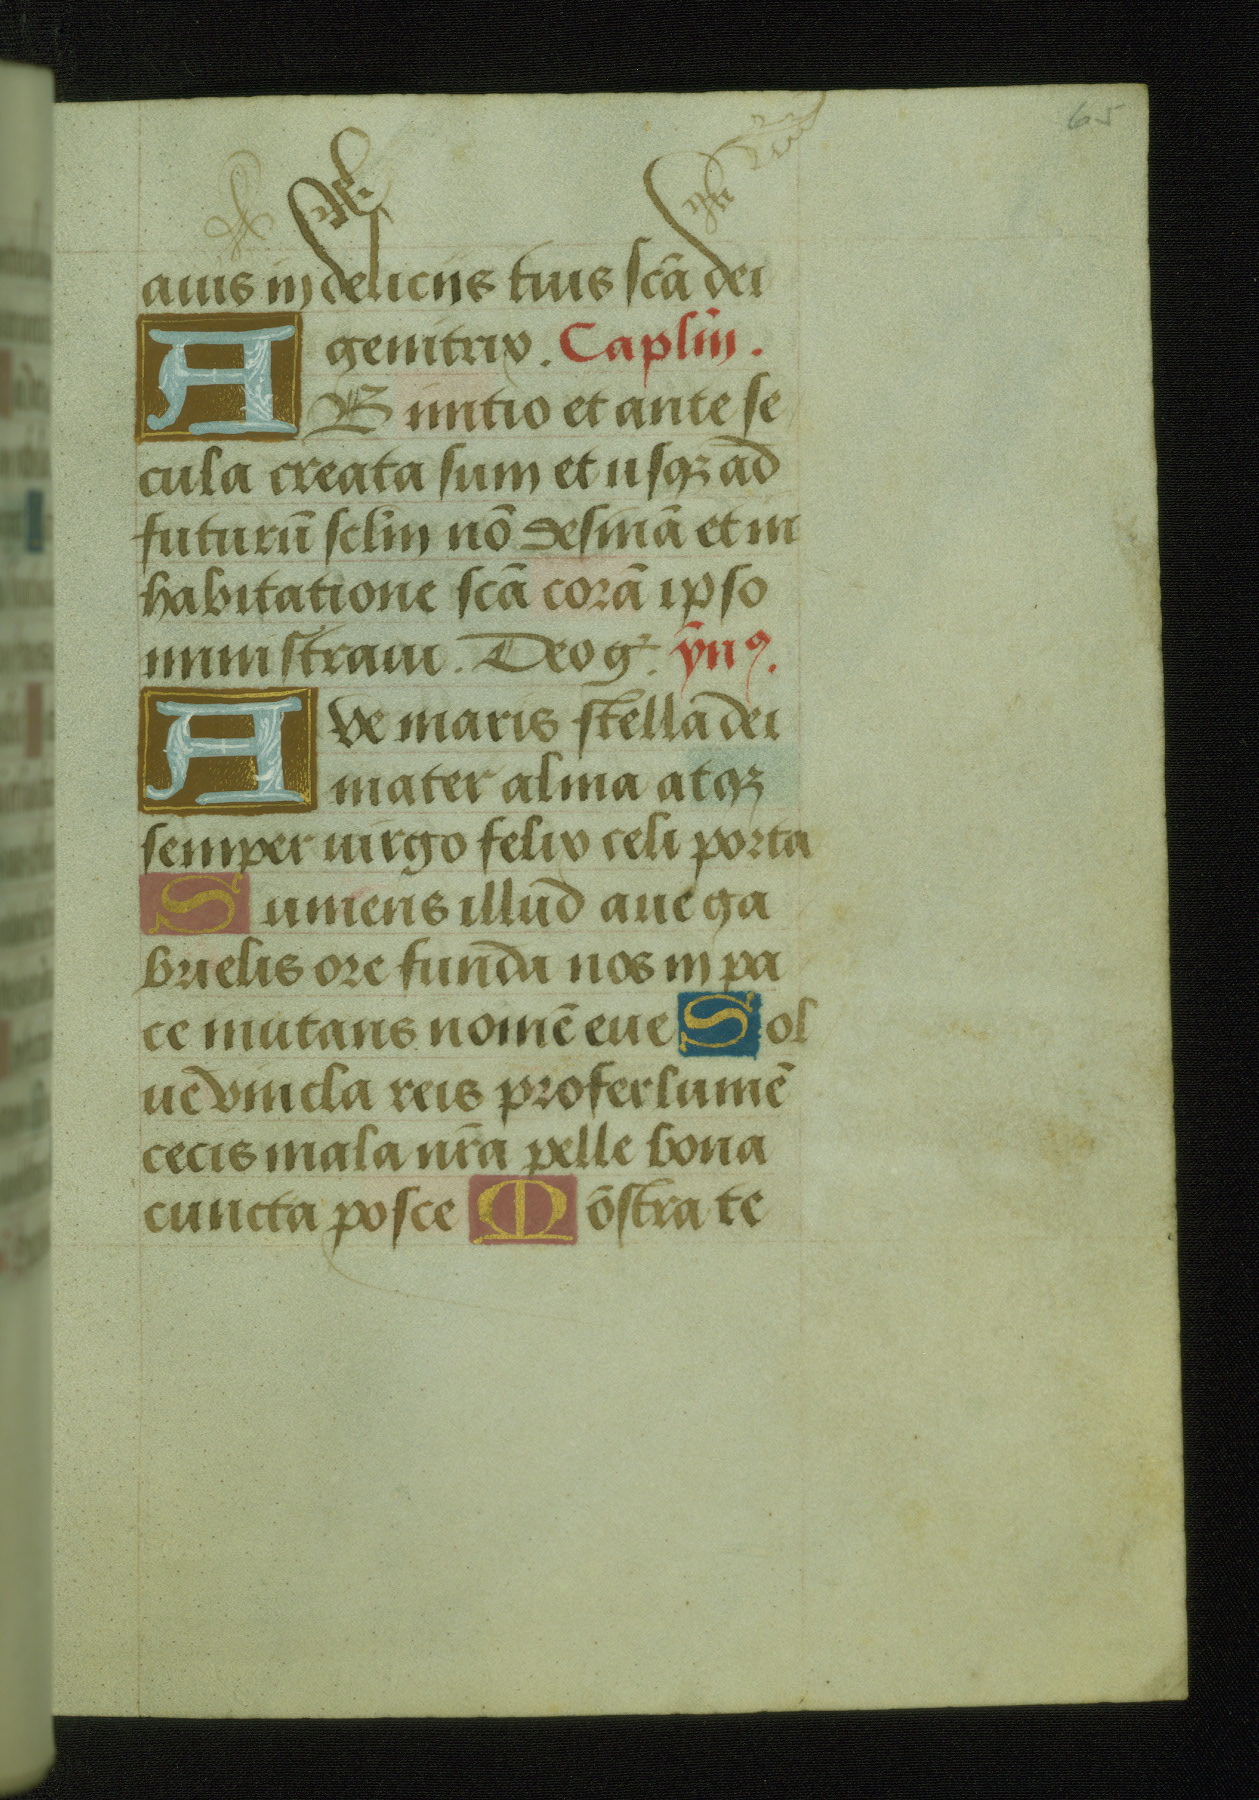 65
auis in deliciis tuis scā dei
genitrix. Caplm̄.
AB initio et ante se
cula creata sum et usqꝫ ad
futurū sclm̄ nō desinā et in
habitatione scā corā ipso
ministraui. Deo gr̄. ymꝰ.
Ave maris stella dei
mater alma atqꝫ
semper uirgo felix celi porta
Sumens illud aue ga
brielis ore funda nos in pa
ce mutans nomē eue Sol
ue vincla reis profer lumē
cecis mala nr̄a pelle bona
cuncta posce Mōstra te